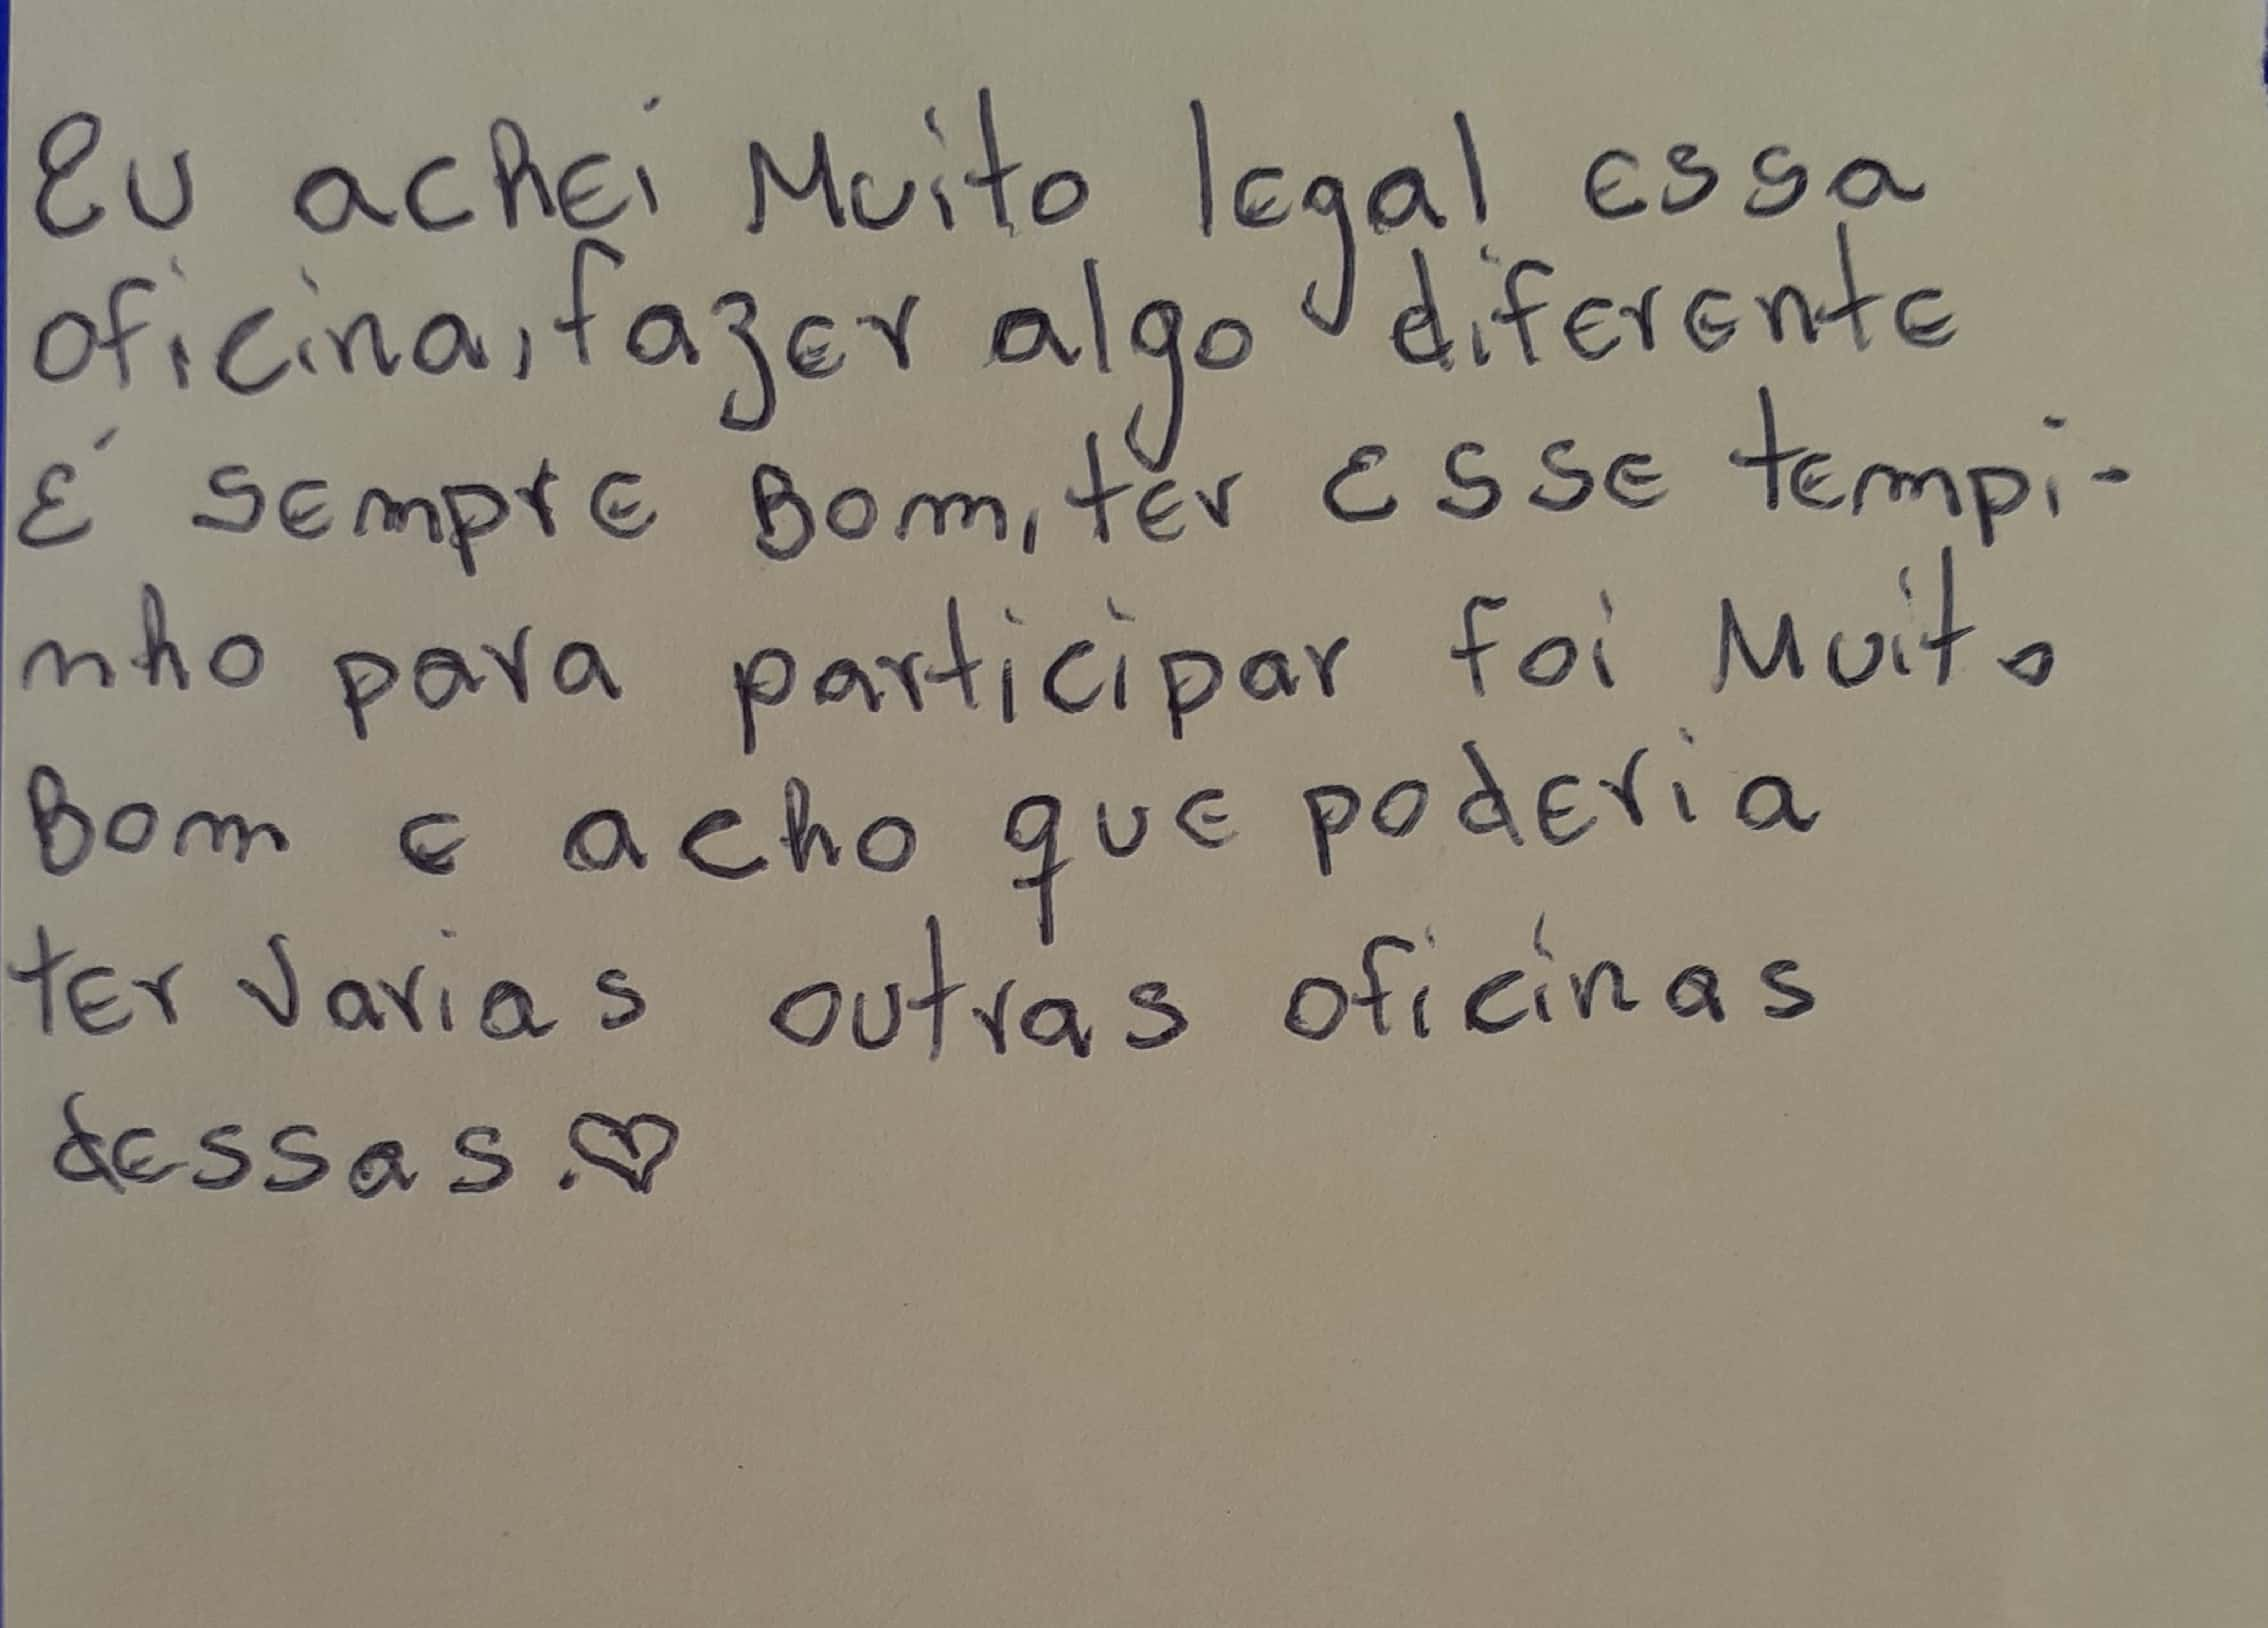 Eu achei Muito legal essa
oficina, fazer algo diferente
É sempre Bom, ter esse tempi-
nho para participar foi Muito
Bom e acho que poderia
ter varias outras oficinas
dessas.♡